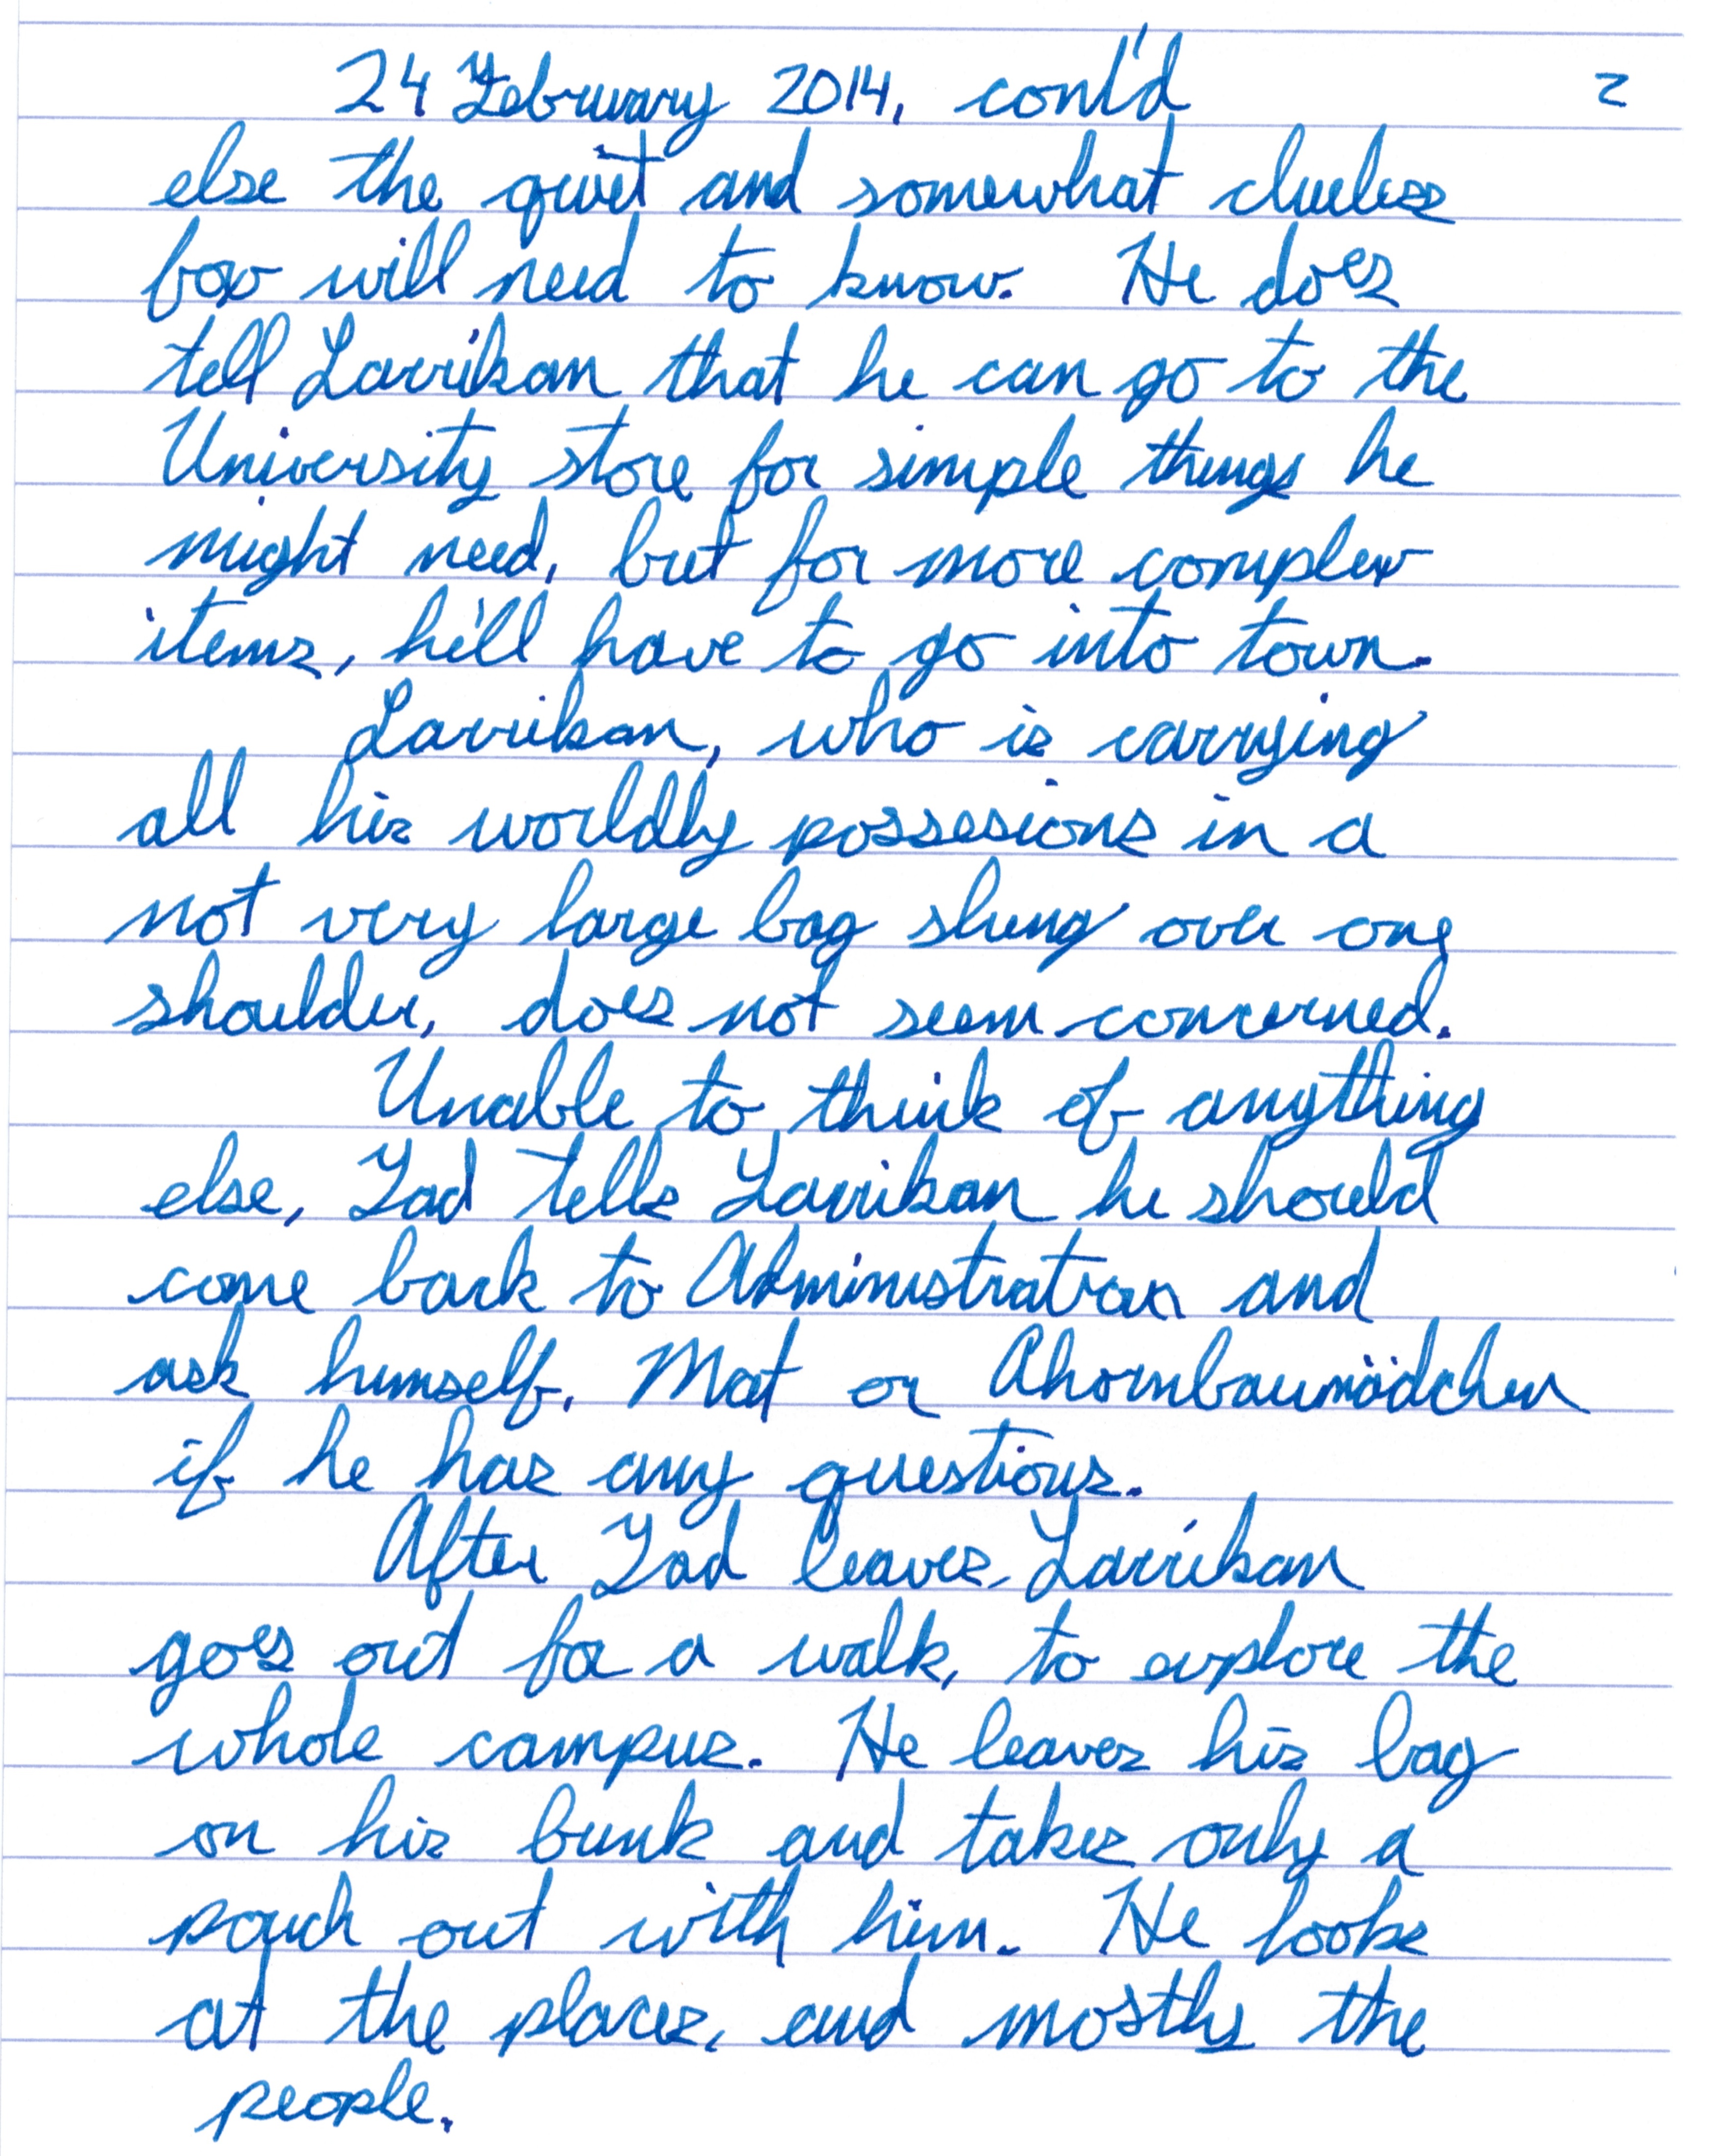 24 February 2014, cont'd 2
else the quiet and somewhat clueless
fox will need to know. He does
tell Larrikan that he can go to the
University store for simple things he
might need, but for more complex
items, he'll have to go into town.
Larrikan, who is carrying
all his worldly possesions in a
not very large bag slung over one
shoulder, does not seem concerned.
Unable to think of anything
else, Tad tells Larrikan he should
come back to Administration and
ask himself, Mat or Ahornbaumädchen
if he has any questions.
After Tad leaves, Larrikan
goes out for a walk, to explore the
whole campus. He leaves his bag
on his bunk and takes only a
pouch out with him. He looks
at the places, and mostly the
people.